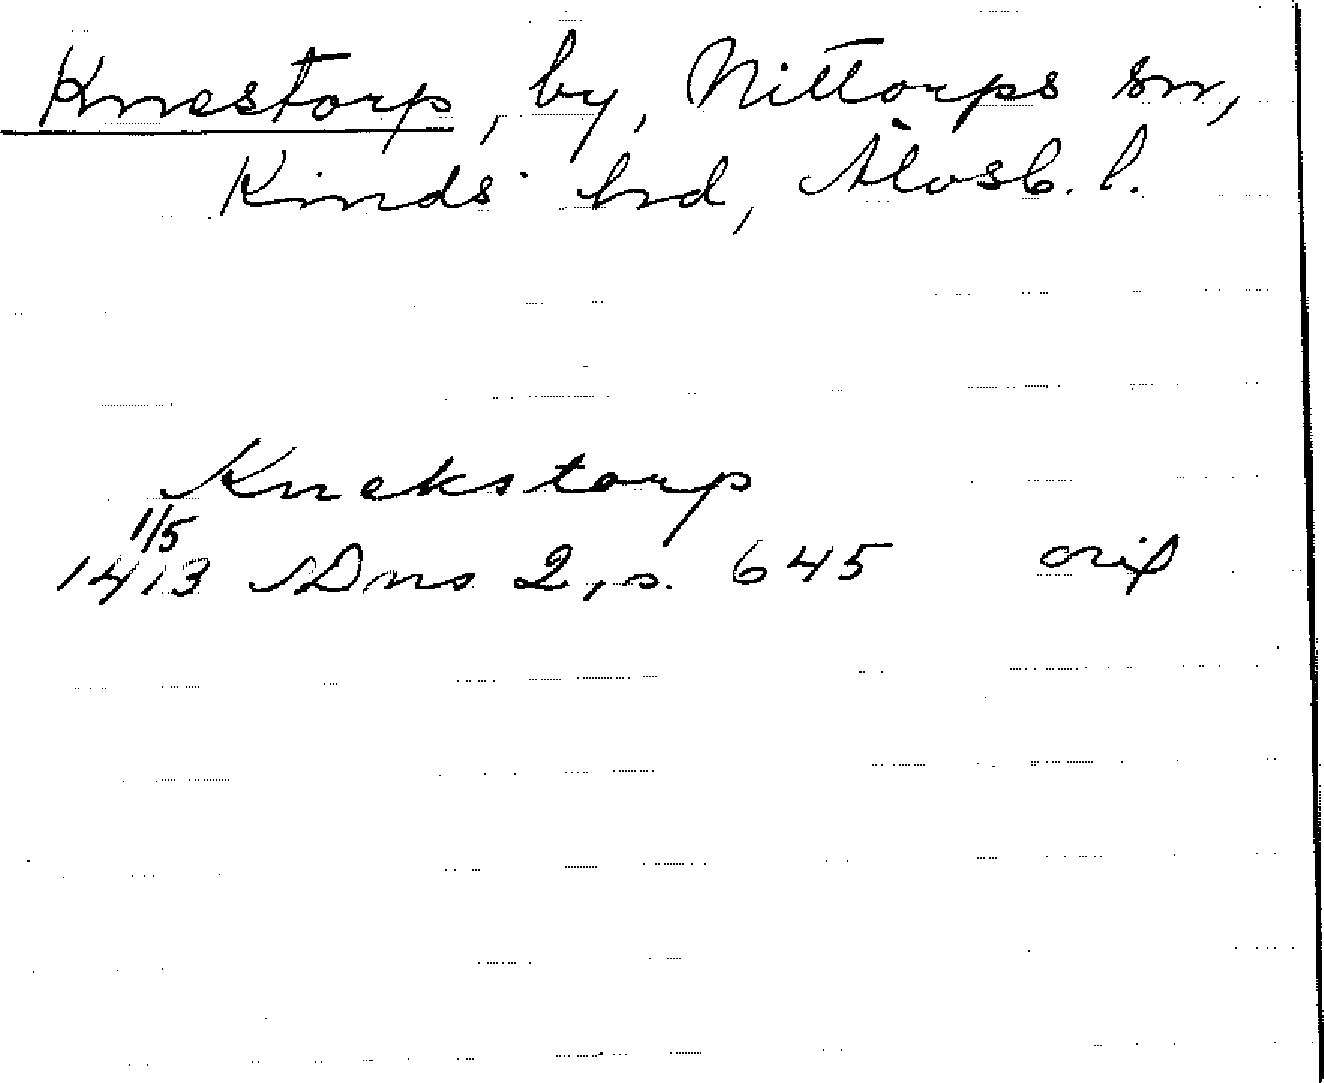 Knestorp, by, Nittorps sn,
Kinds hrd, Älvsb. l.
Knekstorp
1/5
1413 SDns 2, s. 645 orig